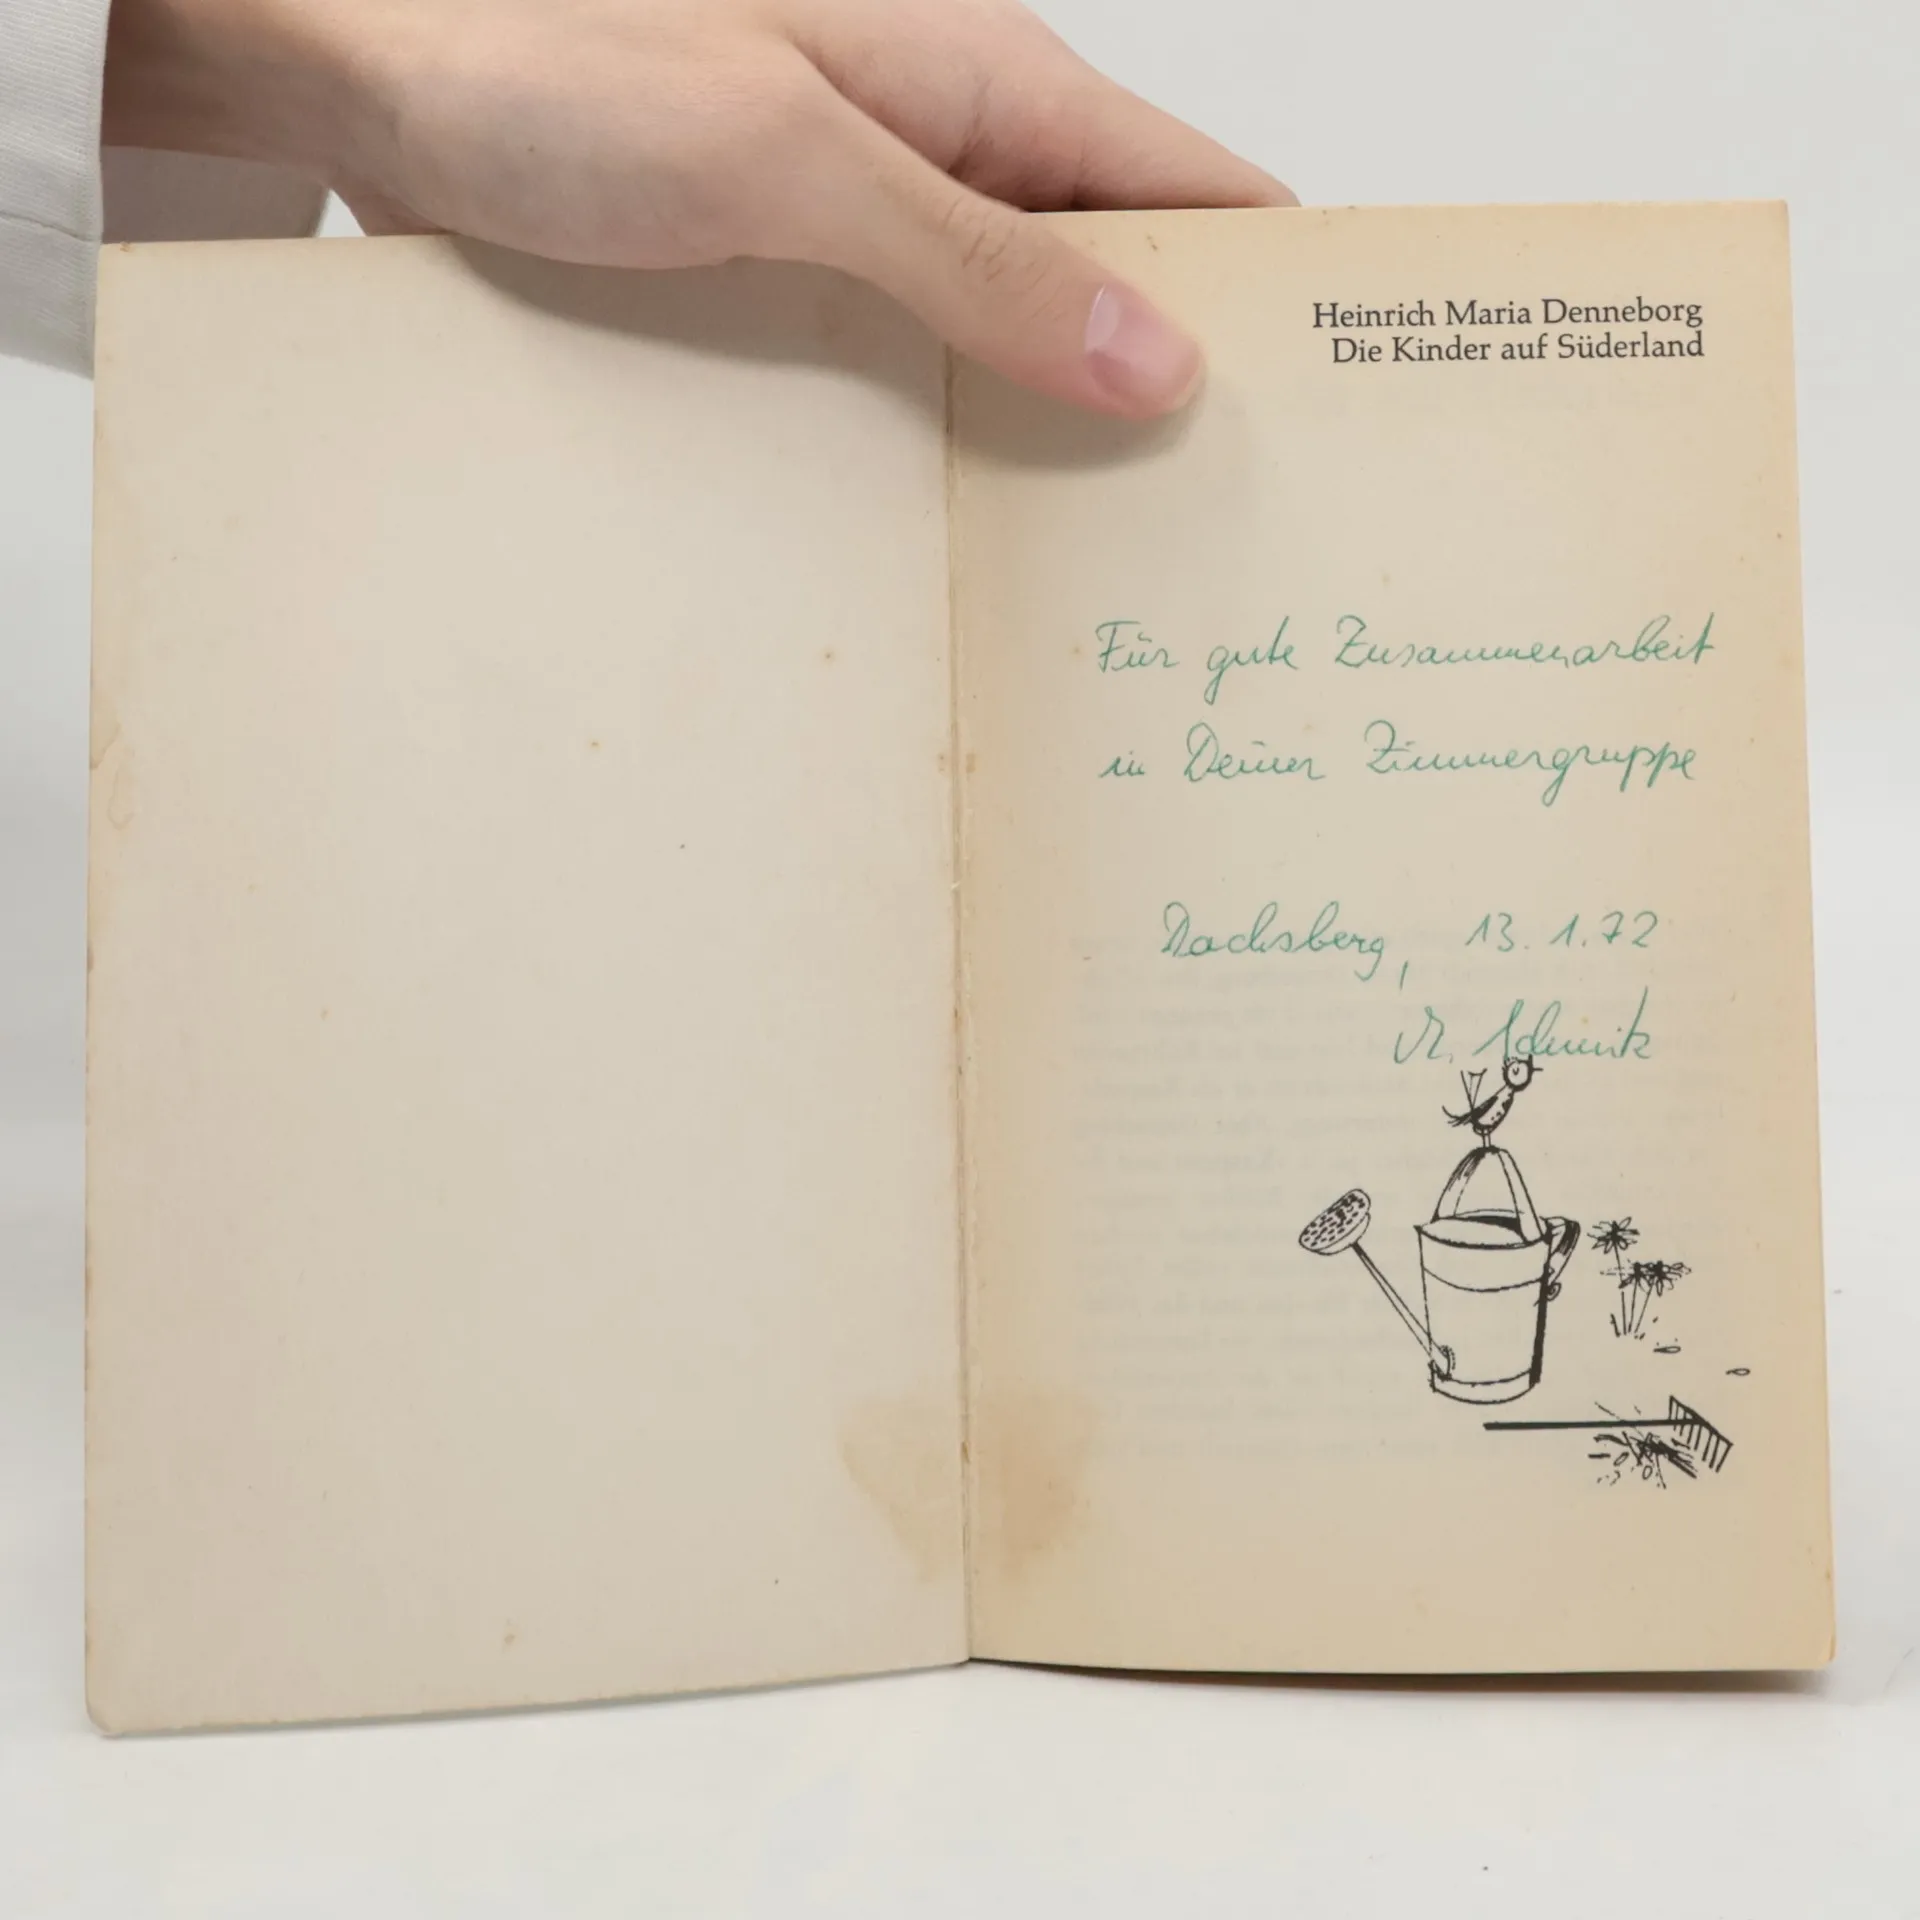 Heinrich Maria Denneborg
Die Kinder auf Süderland
Für gute Zusammenarbeit
in Deiner Zimmergruppe
Dachsberg, 13.1.72
Schmitz